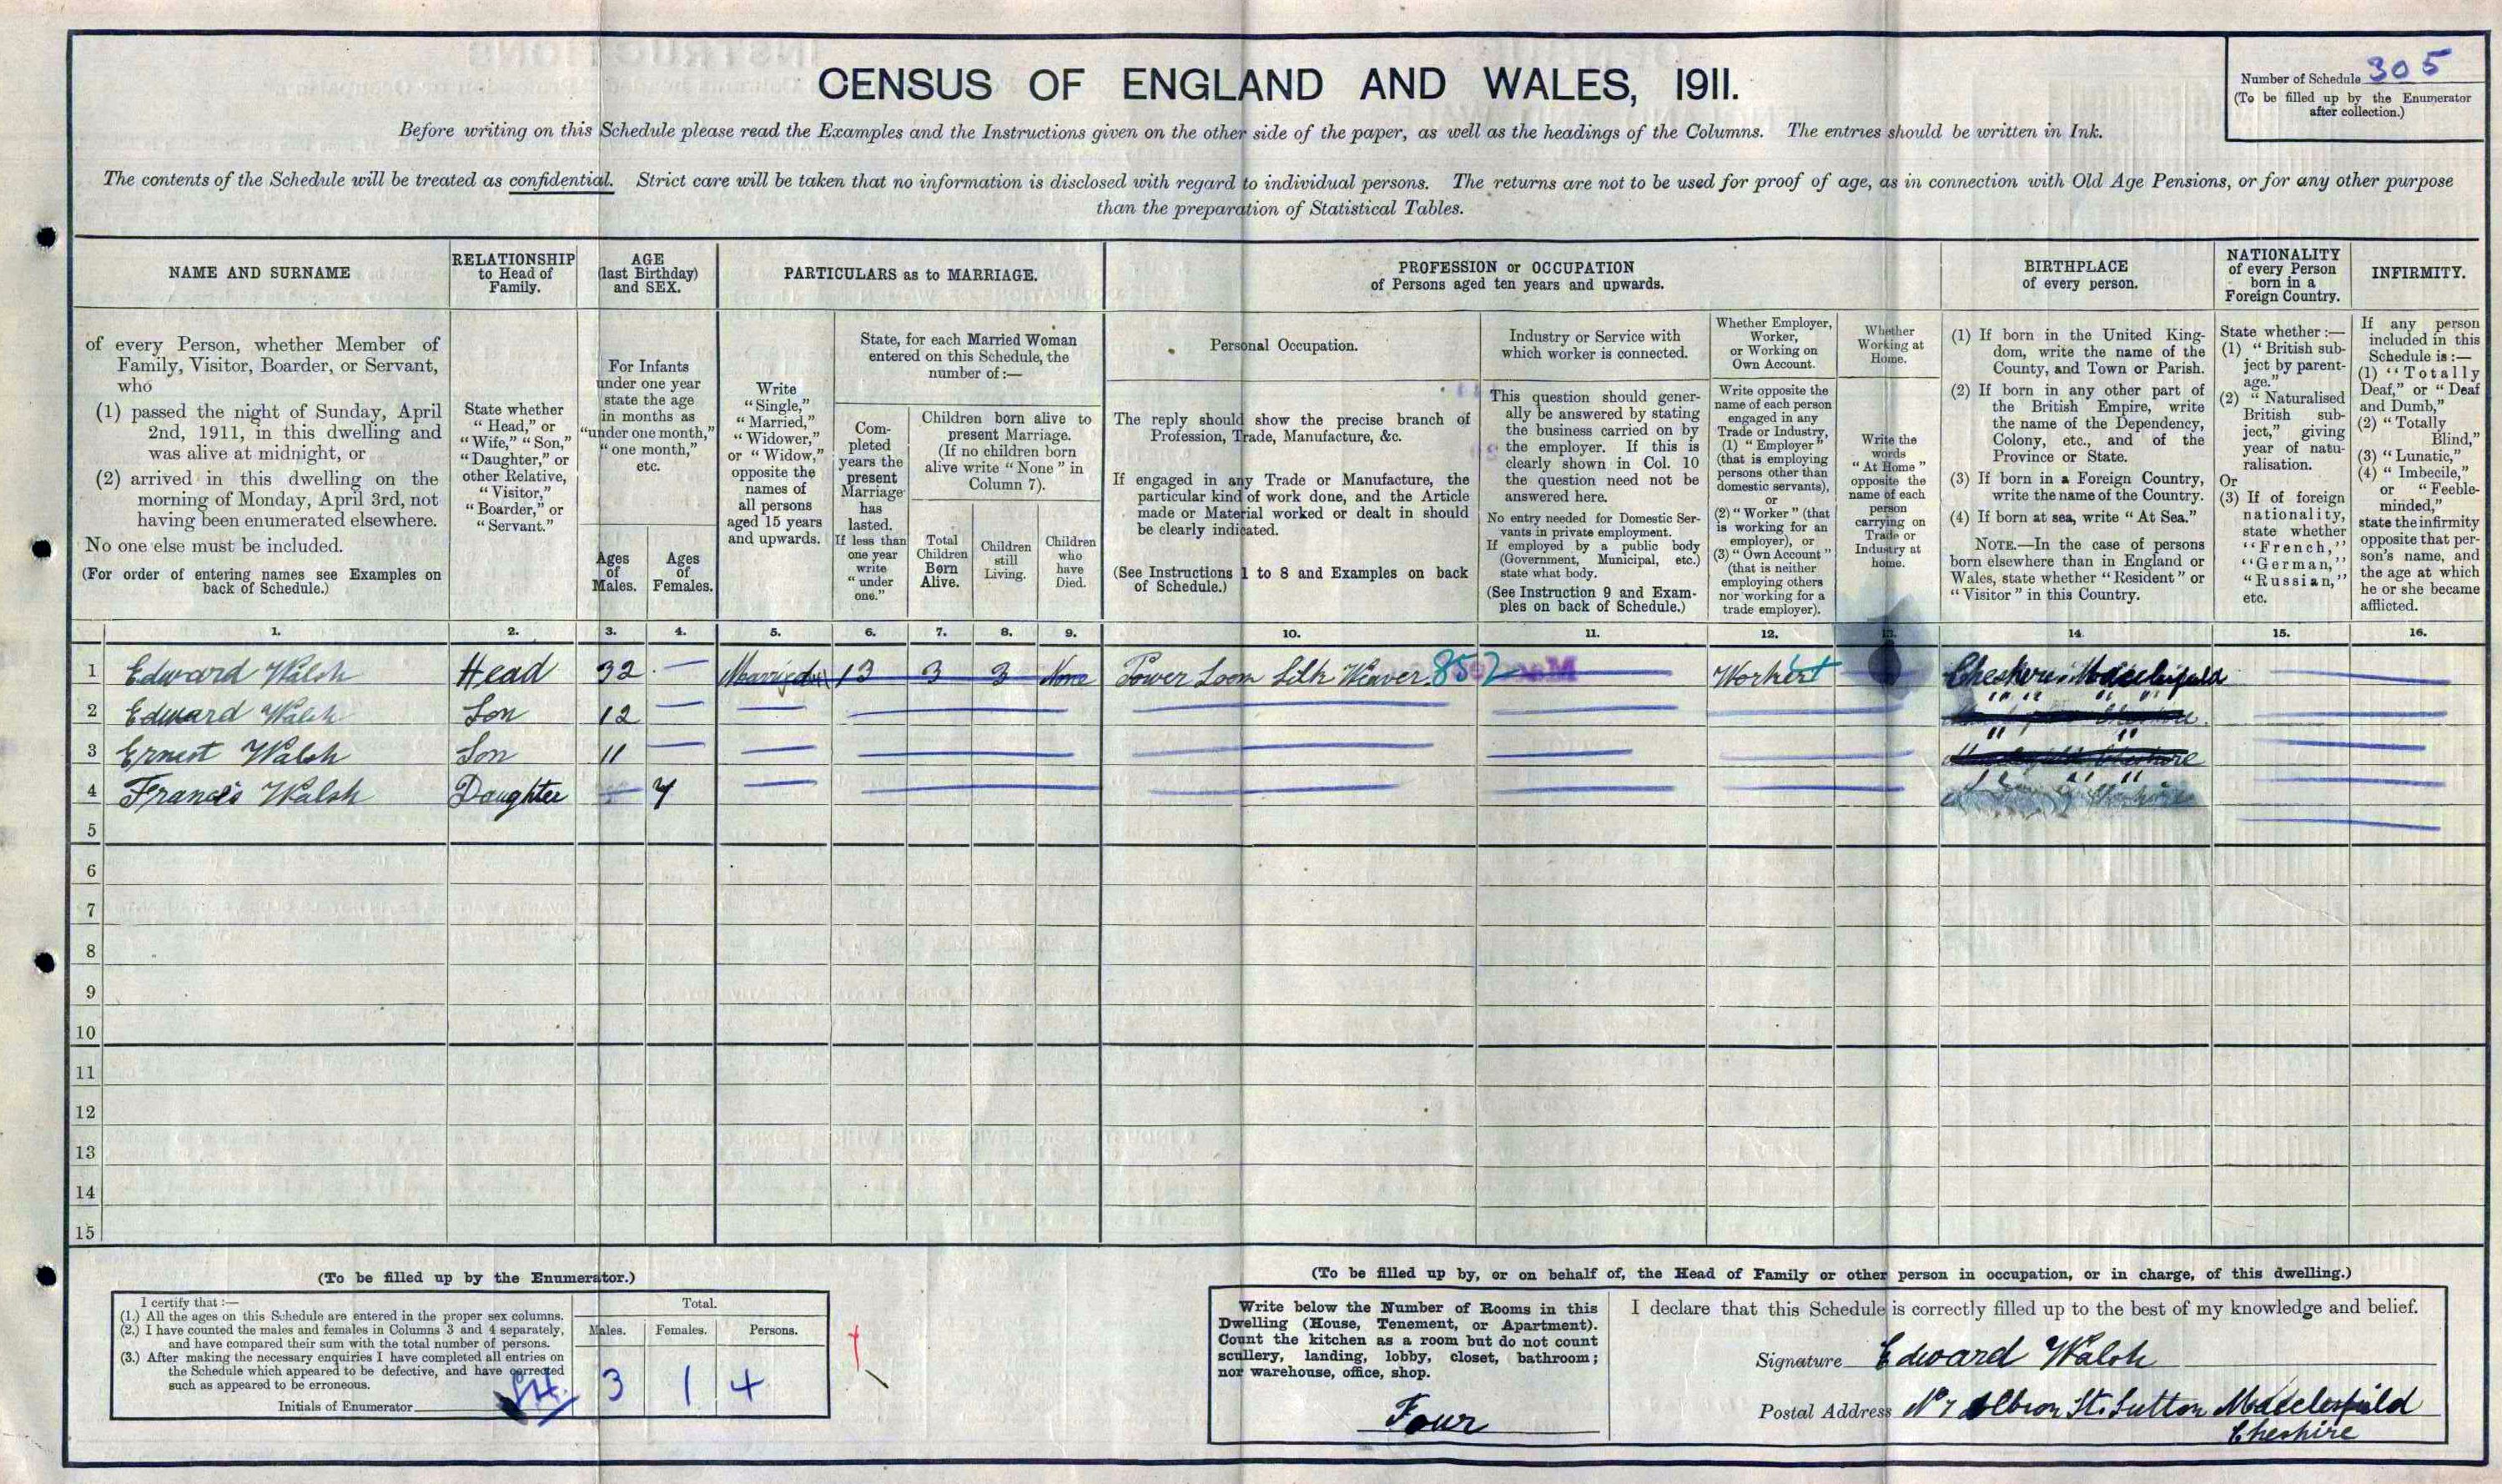 CENSUS OF ENGLAND AND WALES, 1911.
Number of Schedule 305
(To be filled up by the Enumerator
after collection.)
Before writing on this Schedule please read the Examples and the Instructions given on the other side of the paper, as well as the headings of the Columns. The entries should be written in Ink.
The contents of the Schedule will be treated as confidential. Strict care will be taken that no information is disclosed with regard to individual persons. The returns are not to be used for proof of age, as in connection with Old Age Pensions, or for any other purpose
than the preparation of Statistical Tables.
NAME AND SURNAME
of every Person, whether Member of
Family, Visitor, Boarder, or Servant,
who
(1) passed the night of Sunday, April
2nd, 1911, in this dwelling and
was alive at midnight, or
(2) arrived in this dwelling on the
morning of Monday, April 3rd, not
having been enumerated elsewhere.
No one else must be included.
(For order of entering names see Examples on
back of Schedule.)
RELATIONSHIP
to Head of
Family.
State whether
"Head," or
"Wife," "Son,"
"Daughter," or
other Relative,
"Visitor,"
"Boarder," or
"Servant."
AGE
(last Birthday)
and SEX.
For Infants
under one year
state the age
in months as
"under one month,"
"one month,"
etc.
Ages
of
Males.
Ages
of
Females.
PARTICULARS as to MARRIAGE.
Write
"Single,"
"Married,"
"Widower,"
or "Widow,"
opposite the
names of
all persons
aged 15 years
and upwards.
State, for each Married Woman
entered on this Schedule, the
number of:—
Com-
pleted
years the
present
Marriage
has
lasted.
If less than
one year
write
"under
one."
Children born alive to
present Marriage.
(If no children born
alive write "None" in
Column 7).
Total
Children
Born
Alive.
Children
still
Living.
Children
who
have
Died.
PROFESSION or OCCUPATION
of Persons aged ten years and upwards.
Personal Occupation.
The reply should show the precise branch of
Profession, Trade, Manufacture, &c.
If engaged in any Trade or Manufacture, the
particular kind of work done, and the Article
made or Material worked or dealt in should
be clearly indicated.
(See Instructions 1 to 8 and Examples on back
of Schedule.)
Industry or Service with
which worker is connected.
This question should gener-
ally be answered by stating
the business carried on by
the employer. If this is
clearly shown in Col. 10
the question need not be
answered here.
No entry needed for Domestic Ser-
vants in private employment.
If employed by a public body
(Government, Municipal, etc.)
state what body.
(See Instruction 9 and Exam-
ples on back of Schedule.)
Whether Employer,
Worker,
or Working on
Own Account.
Write opposite the
name of each person
engaged in any
Trade or Industry,
(1) "Employer"
(that is employing
persons other than
domestic servants),
or
(2) "Worker" (that
is working for an
employer), or
(3) "Own Account"
(that is neither
employing others
nor working for a
trade employer).
Whether
Working at
Home.
Write the
words
"At Home"
opposite the
name of each
person
carrying on
Trade or
Industry at
home.
BIRTHPLACE
of every person.
(1) If born in the United King-
dom, write the name of the
County, and Town or Parish.
(2) If born in any other part of
the British Empire, write
the name of the Dependency,
Colony, etc., and of the
Province or State.
(3) If born in a Foreign Country,
write the name of the Country.
(4) If born at sea, write "At Sea."
NOTE.—In the case of persons
born elsewhere than in England or
Wales, state whether "Resident" or
"Visitor" in this Country.
NATIONALITY
of every Person
born in a
Foreign Country.
State whether:—
(1) "British sub-
ject by parent-
age."
(2) "Naturalised
British sub-
ject," giving
year of natu-
ralisation.
Or
(3) If of foreign
nationality,
state whether
"French,"
"German,"
"Russian,"
etc.
INFIRMITY.
If any person
included in this
Schedule is:—
(1) "Totally
Deaf," or "Deaf
and Dumb,"
(2) "Totally
Blind,"
(3) "Lunatic,"
(4) "Imbecile,"
or "Feeble-
minded,"
state the infirmity
opposite that per-
son's name, and
the age at which
he or she became
afflicted.
1. 2. 3. 4. 5. 6. 7. 8. 9. 10. 11. 12. 13. 14. 15. 16.
1 Edward Walsh Head 32 — Married 13 3 3 None Power Loom Silk Weaver 852 Worker Cheshire Macclesfield
2 Edward Walsh Son 12 — " " " "
3 Ernest Walsh Son 11 — " "
4 Francis Walsh Daughter — 7 " "
5
6
7
8
9
10
11
12
13
14
15
(To be filled up by the Enumerator.)
I certify that:—
(1.) All the ages on this Schedule are entered in the proper sex columns.
(2.) I have counted the males and females in Columns 3 and 4 separately,
and have compared their sum with the total number of persons.
(3.) After making the necessary enquiries I have completed all entries on
the Schedule which appeared to be defective, and have corrected
such as appeared to be erroneous.
Initials of Enumerator
Total.
Males. Females. Persons.
3 1 4
(To be filled up by, or on behalf of, the Head of Family or other person in occupation, or in charge, of this dwelling.)
Write below the Number of Rooms in this
Dwelling (House, Tenement, or Apartment).
Count the kitchen as a room but do not count
scullery, landing, lobby, closet, bathroom;
nor warehouse, office, shop.
Four
I declare that this Schedule is correctly filled up to the best of my knowledge and belief.
Signature Edward Walsh
Postal Address No 7 Albion St. Sutton Macclesfield
Cheshire